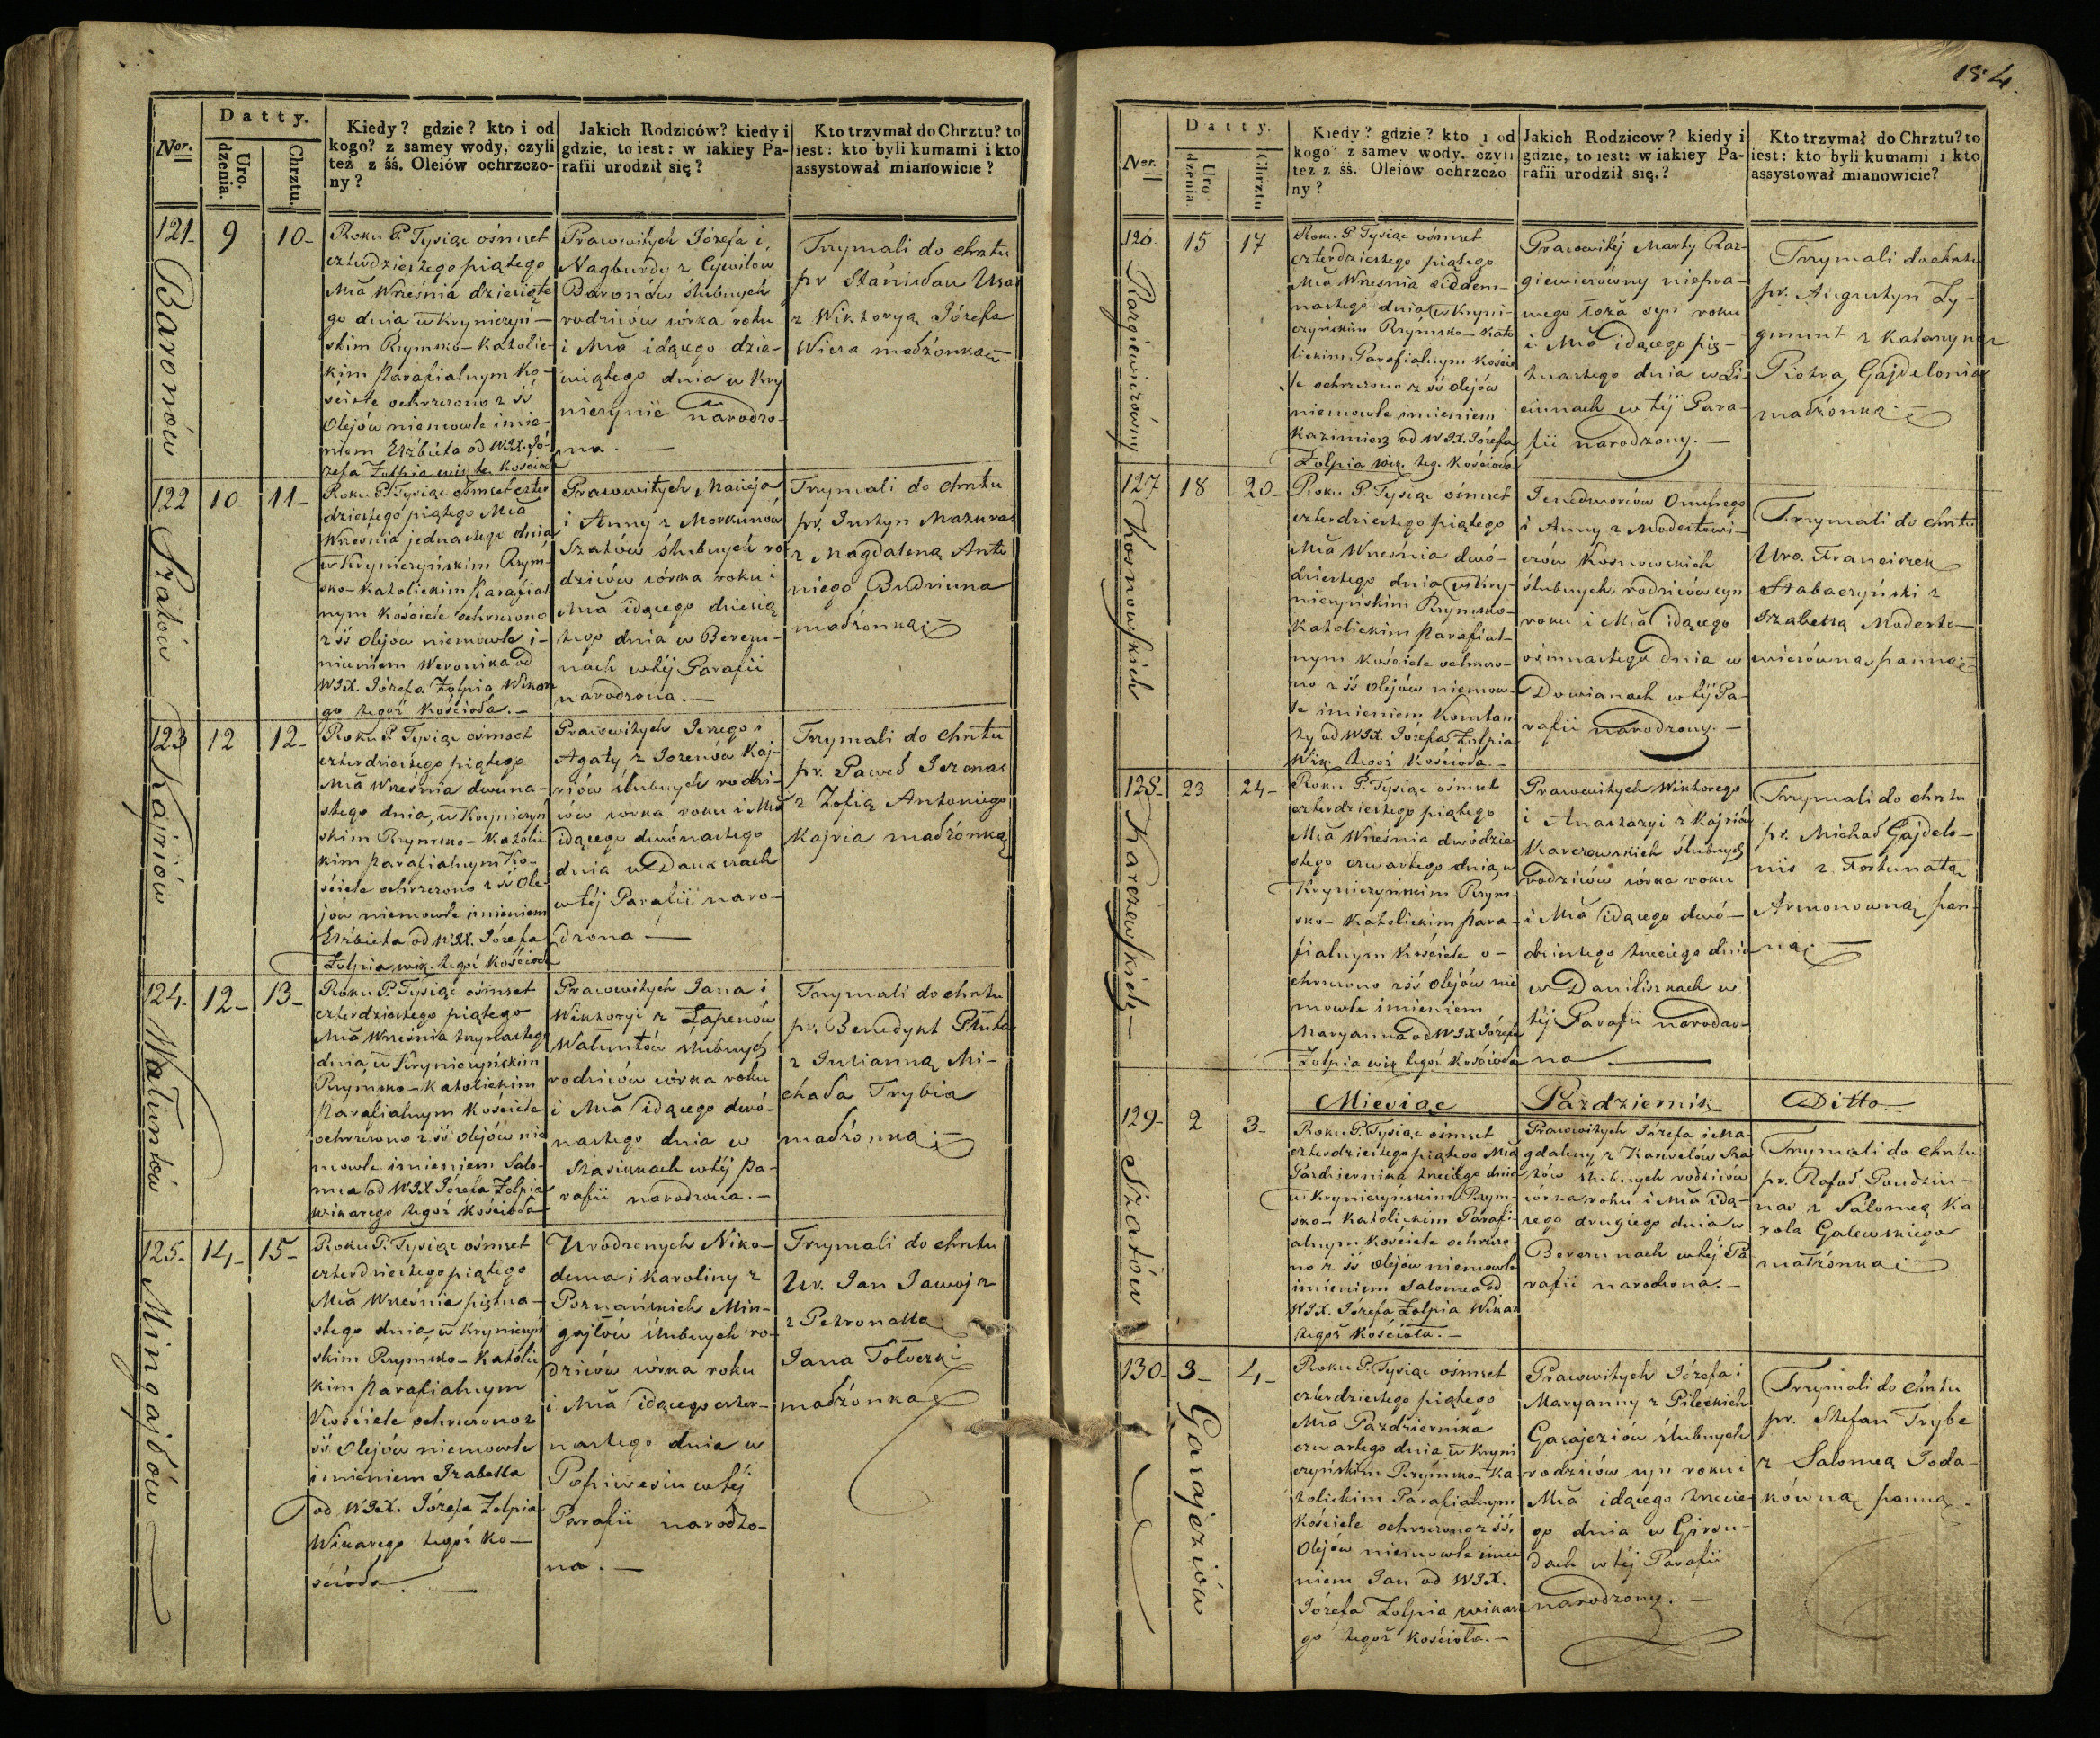 184.
Datty.
Nor.
Uro.
dzenia.
Chrztu.
Kiedy? gdzie? kto i od
kogo? z samey wody, czyli
też z śś. Oleiów ochrzczo-
ny?
Jakich Rodziców? kiedy i
gdzie, to iest: w iakiey Pa-
rafii urodził się?
Kto trzymał do Chrztu? to
iest: kto byli kumami i kto
assystował mianowicie?
121-
Baronów
9
10-
Roku P. Tysiąc ośmset
czterdziestego piątego
Mca Września dziesiąte
go dnia w Kryniczyń-
skim Rzymsko-Katolic-
kim Parafialnym Ko-
ściele ochrzczono z śś
Olejów niemowle imie-
niem Elżbieta od WJX. Jó-
zefa Zołpia wik. teg. Kościoła
Prawowitych Józefa i
Baronów ślubnych
rodziców córka roku
i Mca idącego dzie-
wiątego dnia w Kry
niczynie narodzo-
na.-
Trzymali do chrztu
pr Stanisław
z Wiktoryą Józefa
Wiera małżonką
122
Szatów
10
11-
Roku P. Tysiąc ośmset czter
dziestego piątego Mca
Września jednastego dnia
w Kryniczyńskim Rzym-
sko-Katolickim Parafial
nym Kościele ochrzczono
z śś Olejów niemowle i-
mieniem Weronika od
WJX. Józefa Zołpia Wikare
go tegoż Kościoła.-
Prawowitych Macieja
i Anny z Morkunów
Szatów ślubnych ro
dziców córka roku i
Mca idącego dziesią
tego dnia w Berezu-
nach w téj Parafii
narodzona.-
Trzymali do chrztu
pr. Justyn Mazuras
z Magdaleną Anto
niego Budriuna
małżonką
123
Kajriów
12
12-
Roku P. Tysiąc ośmset
czterdziestego piątego
Mca Września dwuna-
stego dnia, w Kryniczyń
skim Rzymsko-Katolic
kim Parafialnym Ko-
ściele ochrzczono z śś Ole
jów niemowle imieniem
Elżbieta od WJX. Józefa
Zołpia wik. tegoż Kościoła
Prawowitych Jerzego i
Agaty z Jozenów Kaj-
riów ślubnych rodzi-
ców córka roku i Mca
idącego dwónastego
dnia w Daukszach
w téj Parafii naro-
dzona-
Trzymali do chrztu
pr. Paweł Jozonas
z Zofią Antoniego
Kajria małżonką
124-
Wałuntów
12-
13-
Roku P. Tysiąc ośmset
czterdziestego piątego
Mca Września trzynastego
dnia, w Kryniczyńskim
Rzymsko-Katolickim
Parafialnym Kościele
ochrzczono z śś Olejów nie
mowle imieniem Salo-
mea od WJX Józefa Zołpia
Wikarego tegoż Kościoła
Prawowitych Jana i
Wiktoryi z Łapenów
Wałuntów ślubnych
rodziców córka roku
i Mca idącego dwó-
nastego dnia w
Stasiunach w téj Pa-
rafii narodzona.-
Trzymali do chrztu
pr. Benedykt
z Julianną Mi-
chała Trybia
małżonką
125-
Mingajłów
14-
15-
Roku P. Tysiąc ośmset
czterdziestego piątego
Mca Września piętna-
stego dnia, w Kryniczyń
skim Rzymsko-Katolic
kim Parafialnym
Kościele ochrzczono z
śś Olejów niemowle
imieniem Izabella
od WJX. Józefa Zołpia
Wikarego tegoż Ko-
ścioła.-
Urodzonych Niko-
dema i Karoliny z
Poznańskich Min-
gajłów ślubnych ro-
dziców córka roku
i Mca idącego czter-
nastego dnia w
Popiwesiu w téj
Parafii narodzo-
na.-
Trzymali do chrztu
Ur. Jan Jawojsz
z Petronellą
Jana Tołoczki
małżonką
Datty.
Nor.
Uro
dzenia.
Chrztu
Kiedy? gdzie? kto i od
kogo? z samey wody, czyli
też z śś. Oleiów ochrzczo
ny?
Jakich Rodziców? kiedy i
gdzie, to iest: w iakiey Pa-
rafii urodził się.?
Kto trzymał do Chrztu? to
iest: kto byli kumami i kto
assystował mianowicie?
126.
Razgiewiczówny
15
17
Roku P. Tysiąc ośmset
czterdziestego piątego
Mca Września siedem-
nastego dnia w Kryni-
czyńskim Rzymsko-Kato
lickim Parafialnym Koście
le ochrzczono z śś Olejów
niemowle imieniem
Kazimierz od WJX. Józefa
Zołpia wik. teg. Kościoła
Prawowitéj Marty Raz-
giewiczówny niepra-
wego łoża syn roku
i Mca idącego pię-
tnastego dnia w
w téj Para-
fii narodzony.-
Trzymali do chrztu
pr. Augustyn Zy-
gmunt z Katarzyną
Piotra Gajdelonia
małżonką
127
Kosnowskich
18
20-
Roku P. Tysiąc ośmset
czterdziestego piątego
Mca Września dwó-
dziestego dnia, w Kry-
niczyńskim Rzymsko-
Katolickim Parafial-
nym Kościele ochrzczo-
no z śś Olejów niemow-
le imieniem Konstan
ty od WJX. Józefa Zołpia
Wik. tegoż Kościoła.-
Jenodworców Onufrego
i Anny z Modestowi-
czów Kosnowskich
ślubnych rodziców syn
roku i Mca idącego
ośmnastego dnia w
Dowianach w téj Pa-
rafii narodzony.-
Trzymali do chrztu
Uro. Franciszek
Stabaczyński z
Izabellą Modesto-
wiczówną panną
128-
Karczewskich-
23
24-
Roku P. Tysiąc ośmset
czterdziestego piątego
Mca Września dwódzie
stego czwartego dnia, w
Krynicyńskim Rzym-
sko-Katolickim Para-
fialnym Kościele o-
chrzczono z śś Olejów nie
mowle imieniem
Maryanna od WJX Józefa
Zołpia wik tegoż Kościoła
Prawowitych Wiktorego
i Anastazyi z Kajriów
Karczewskich ślubnych
rodziców córka roku
i Mca idącego dwó-
dziestego trzeciego dnia
w Daniliszkach w
téj Parafii narodzo-
na-
Trzymali do chrztu
pr. Michał Gajdelo-
nis z Fortunatą
Armonowną pan-
ną
Miesiąc
Pazdziernik
Ditto
129-
Szatów
2
3-
Roku P. Tysiąc ośmset
czterdziestego piątego Mca
Pazdziernika trzeciego dnia
w Krynicyńskim Rzym-
sko-Katolickim Parafi-
alnym Kościele ochrzczo-
no z śś Olejów niemowle
imieniem Salomea od
WJX. Józefa Zołpia Wikar
tegoż Kościoła.-
Prawowitych Józefa i Ma-
gdaleny z Karwelów Sza
tów ślubnych rodziców
córka roku i Mca idą-
cego drugiego dnia w
Berezunach w téj Pa
rafii narodzona.-
Trzymali do chrztu
pr. Rafał Gaudziu-
nas z Salomeą Ka
rola Galewskiego
małżonką
130-
Garajeziów
3-
4-
Roku P. Tysiąc ośmset
czterdziestego piątego
Mca Pazdziernika
czwartego dnia, w Kryni
czyńskim Rzymsko-Ka
tolickim Parafialnym
Kościele ochrzczono z śś,
Olejów niemowle imie
niem Jan od WJX.
Józefa Zołpia wikare
go tegoż Kościoła.-
Prawowitych Józefa i
Maryanny z Pileckich
Garajeziów ślubnych
rodziców syn roku i
Mca idącego trzecie
go dnia w Girsu-
dach w téj Parafii
narodzony.-
Trzymali do chrztu
pr. Stefan Trybe
z Salomeą Joda-
kówną panną.